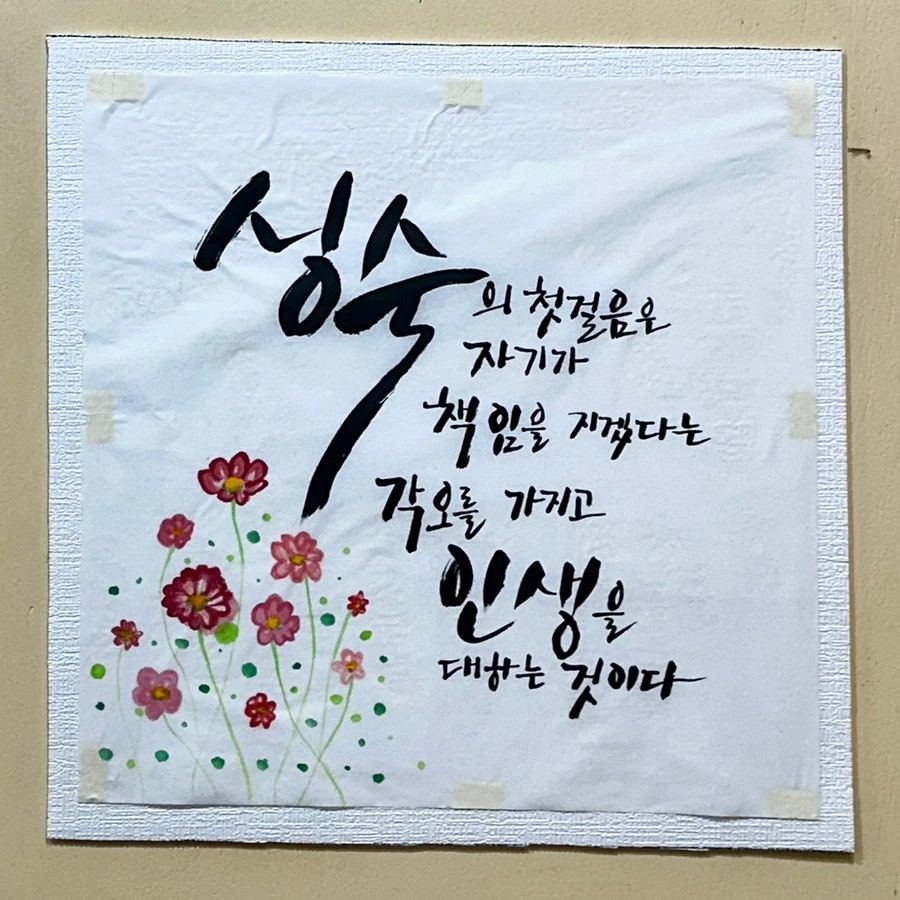 성숙
의 첫걸음은
자기가
책임을 지겠다는
각오를 가지고
인생을
대하는 것이다